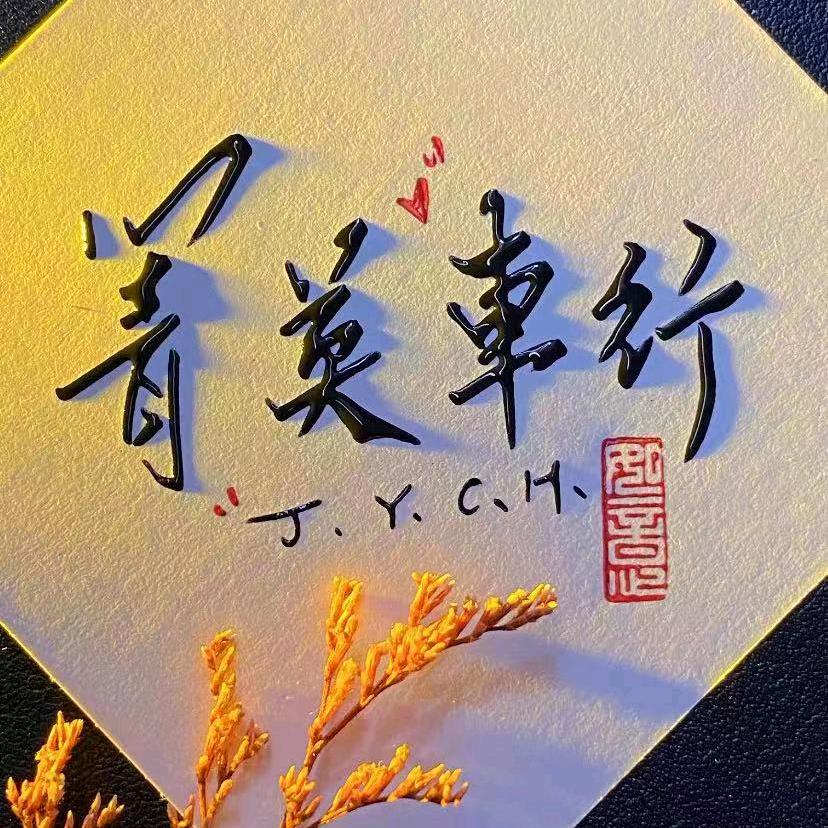 菁英車行
J.Y.C.H.